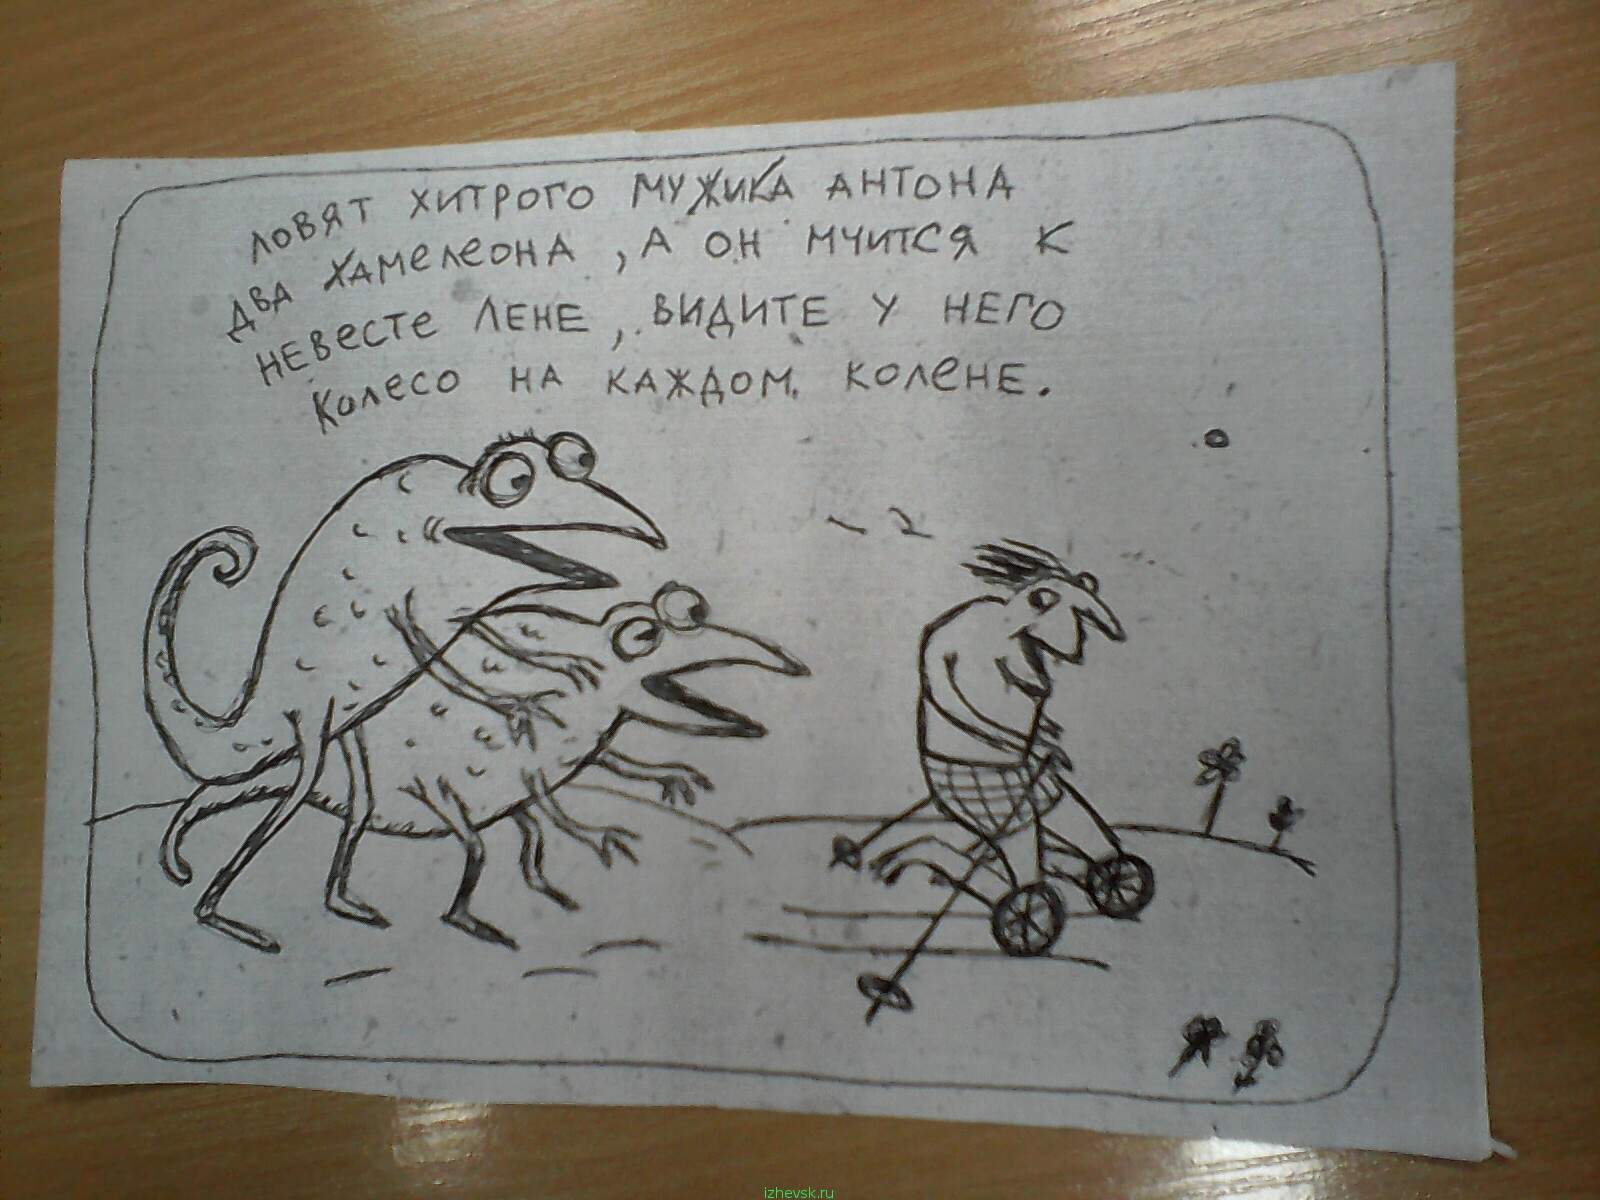 ЛОВЯТ ХИТРОГО МУЖИКА АНТОНА
ДВА ХАМЕЛЕОНА, А ОН МЧИТСЯ К
НЕВЕСТЕ ЛЕНЕ, ВИДИТЕ У НЕГО
КОЛЕСО НА КАЖДОМ КОЛЕНЕ.
izhevsk.ru